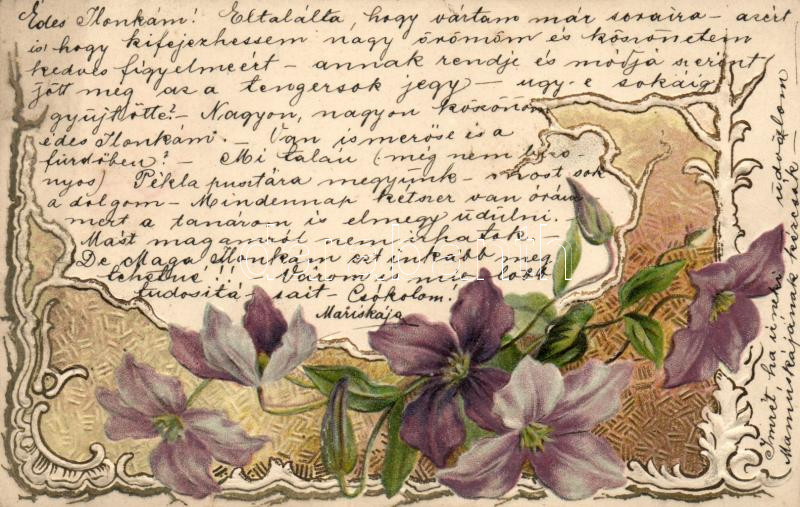 Édes Ilonkám! Eltalálta, hogy vártam már soraira – azért
is, hogy kifejezhessem nagy örömöm és köszönetem
kedves figyelmeért – annak rendje és módja szerint
jött meg az a tengersok jegy – ugy-e sokáig
gyüjtötte? – Nagyon, nagyon köszönöm
édes Ilonkám. – Van ismerőse is a
fürdőben? – Mi talán (még nem bizo-
nyos) Pékla pusztára megyünk – most sok
a dolgom – Mindennap kétszer van órám
mert a tanárom is elmegy üdülni. –
Mást magamról nem irhatok –
De Maga Ilonkám eztinkább meg
tehetné!!! – Várom is mielőbb
tudositá-sait – Csókolom!
Mariskája
Imrét ha ír neki üdvözlom
Mamuskájának kézcsók –